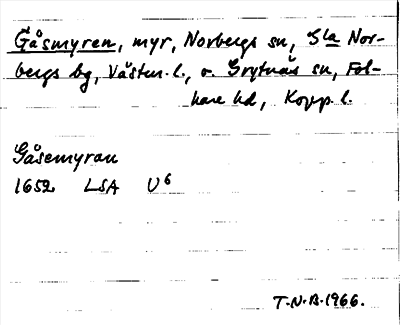 Gåsmyren, myr, Norbergs sn, Gla Nor-
bergs bg, Västm. l., o. Grytnäs sn, Fol-
kare hd, Kopp. l.
Gåsemyran
1652 LSA U6
T.N.B. 1966.